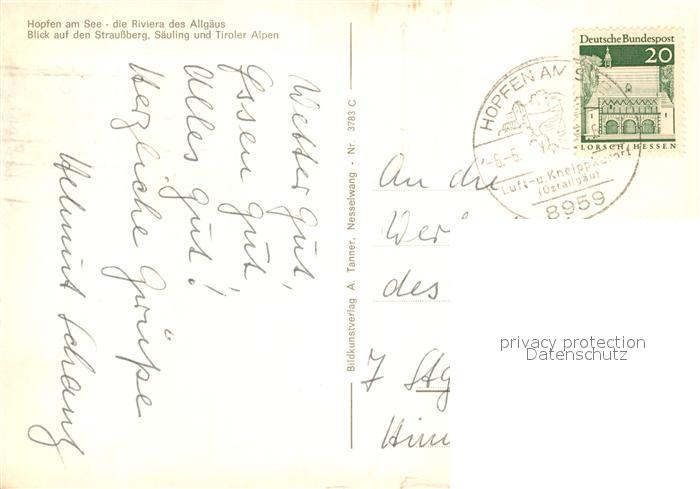 Hopfen am See - die Riviera des Allgäus
Blick auf den Straußberg, Säuling und Tiroler Alpen
Wetter gut,
Essen gut
Alles gut!
Herzliche Grüße
Helmut Schanz
Bildkunstverlag A. Tanner, Nesselwang - Nr. 3783 C
Deutsche Bundespost
20
LORSCH/HESSEN
HOPFEN AM SEE
-6.-5.
Luft-u. Kneippkurort
(Ostallgäu)
8959
An die
Wer
des
7 Stg
Him
privacy protection
Datenschutz